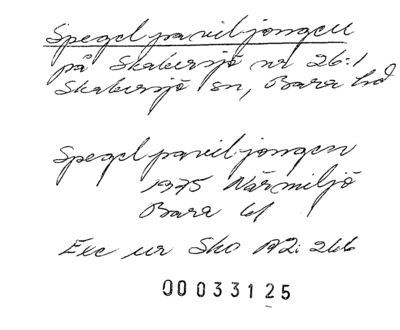 Spegelpaviljongen
på Skabersjö nr 26:1
Skabersjö sn, Bara hd
Spegelpaviljongen
1975 Närmiljö
Bara
Exc ur Sko A2: 266
00033125